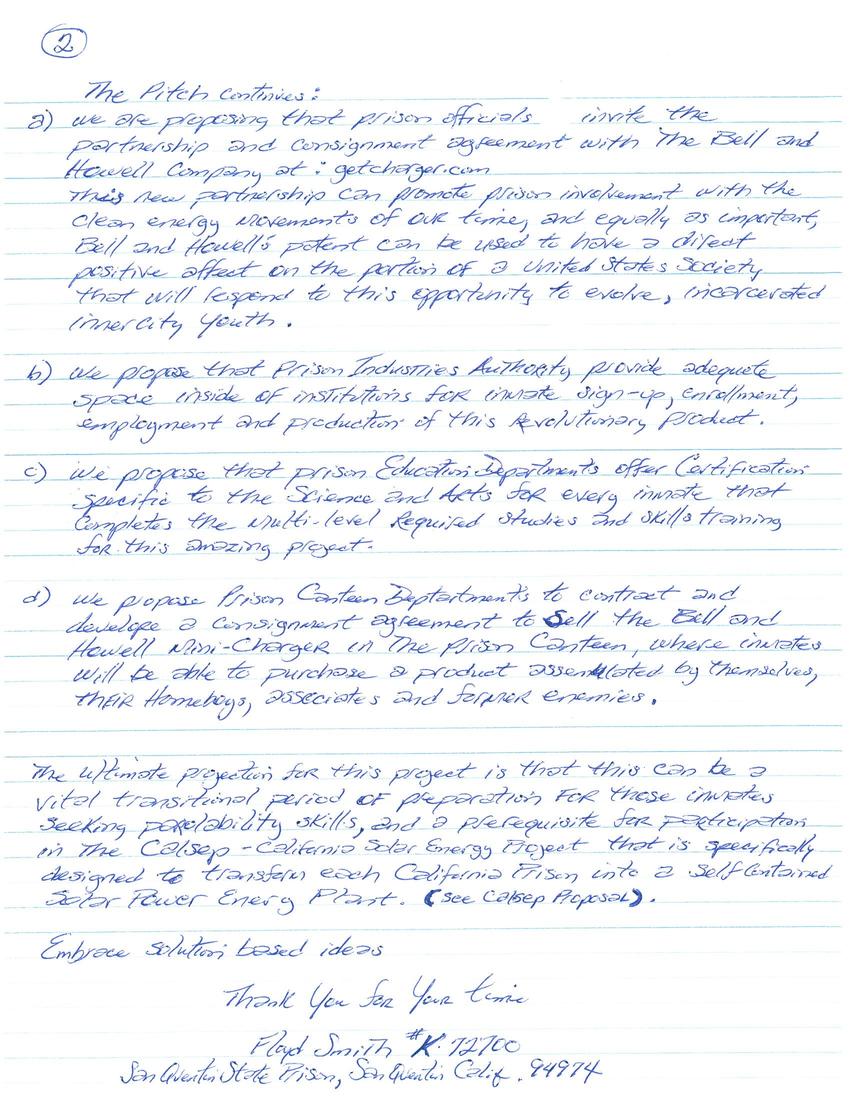 2
The Pitch continues:
a) we are proposing that prison officials invite the
partnership and consignment agreement with The Bell and
Howell Company at : getcharger.com
This new partnership can promote prison involvement with the
clean energy movements of our time, and equally as important,
Bell and Howell's patent can be used to have a direct
positive affect on the portion of a United States Society
that will respond to this opportunity to evolve, incarcerated
inner city youth.
b) we propose that Prison Industries Authority provide adequate
space inside of institutions for inmate sign-up, enrollment,
employment and production of this Revolutionary Product.
c) we propose that prison Education Departments offer Certification
specific to the Science and Arts for every inmate that
Completes the Multi-level Required studies and skills training
for this amazing project.
d) we propose Prison Canteen Deptartment's to contract and
develope a consignment agreement to Sell the Bell and
Howell Mini-Charger in The Prison Canteen, where inmates
will be able to purchase a product assembled by themselves,
their Homeboys, associates and former enemies.
The Ultimate projection for this project is that this can be a
vital transitional period of preparation for those inmates
seeking parolability skills, and a prerequisite for participation
in The Calsep - California Solar Energy Project that is specifically
designed to transform each California Prison into a Self Contained
Solar Power Energy Plant. (see Calsep Proposal).
Embrace solution based ideas
Thank You for Your time
Floyd Smith #K-72700
San Quentin State Prison, San Quentin Calif. 94974